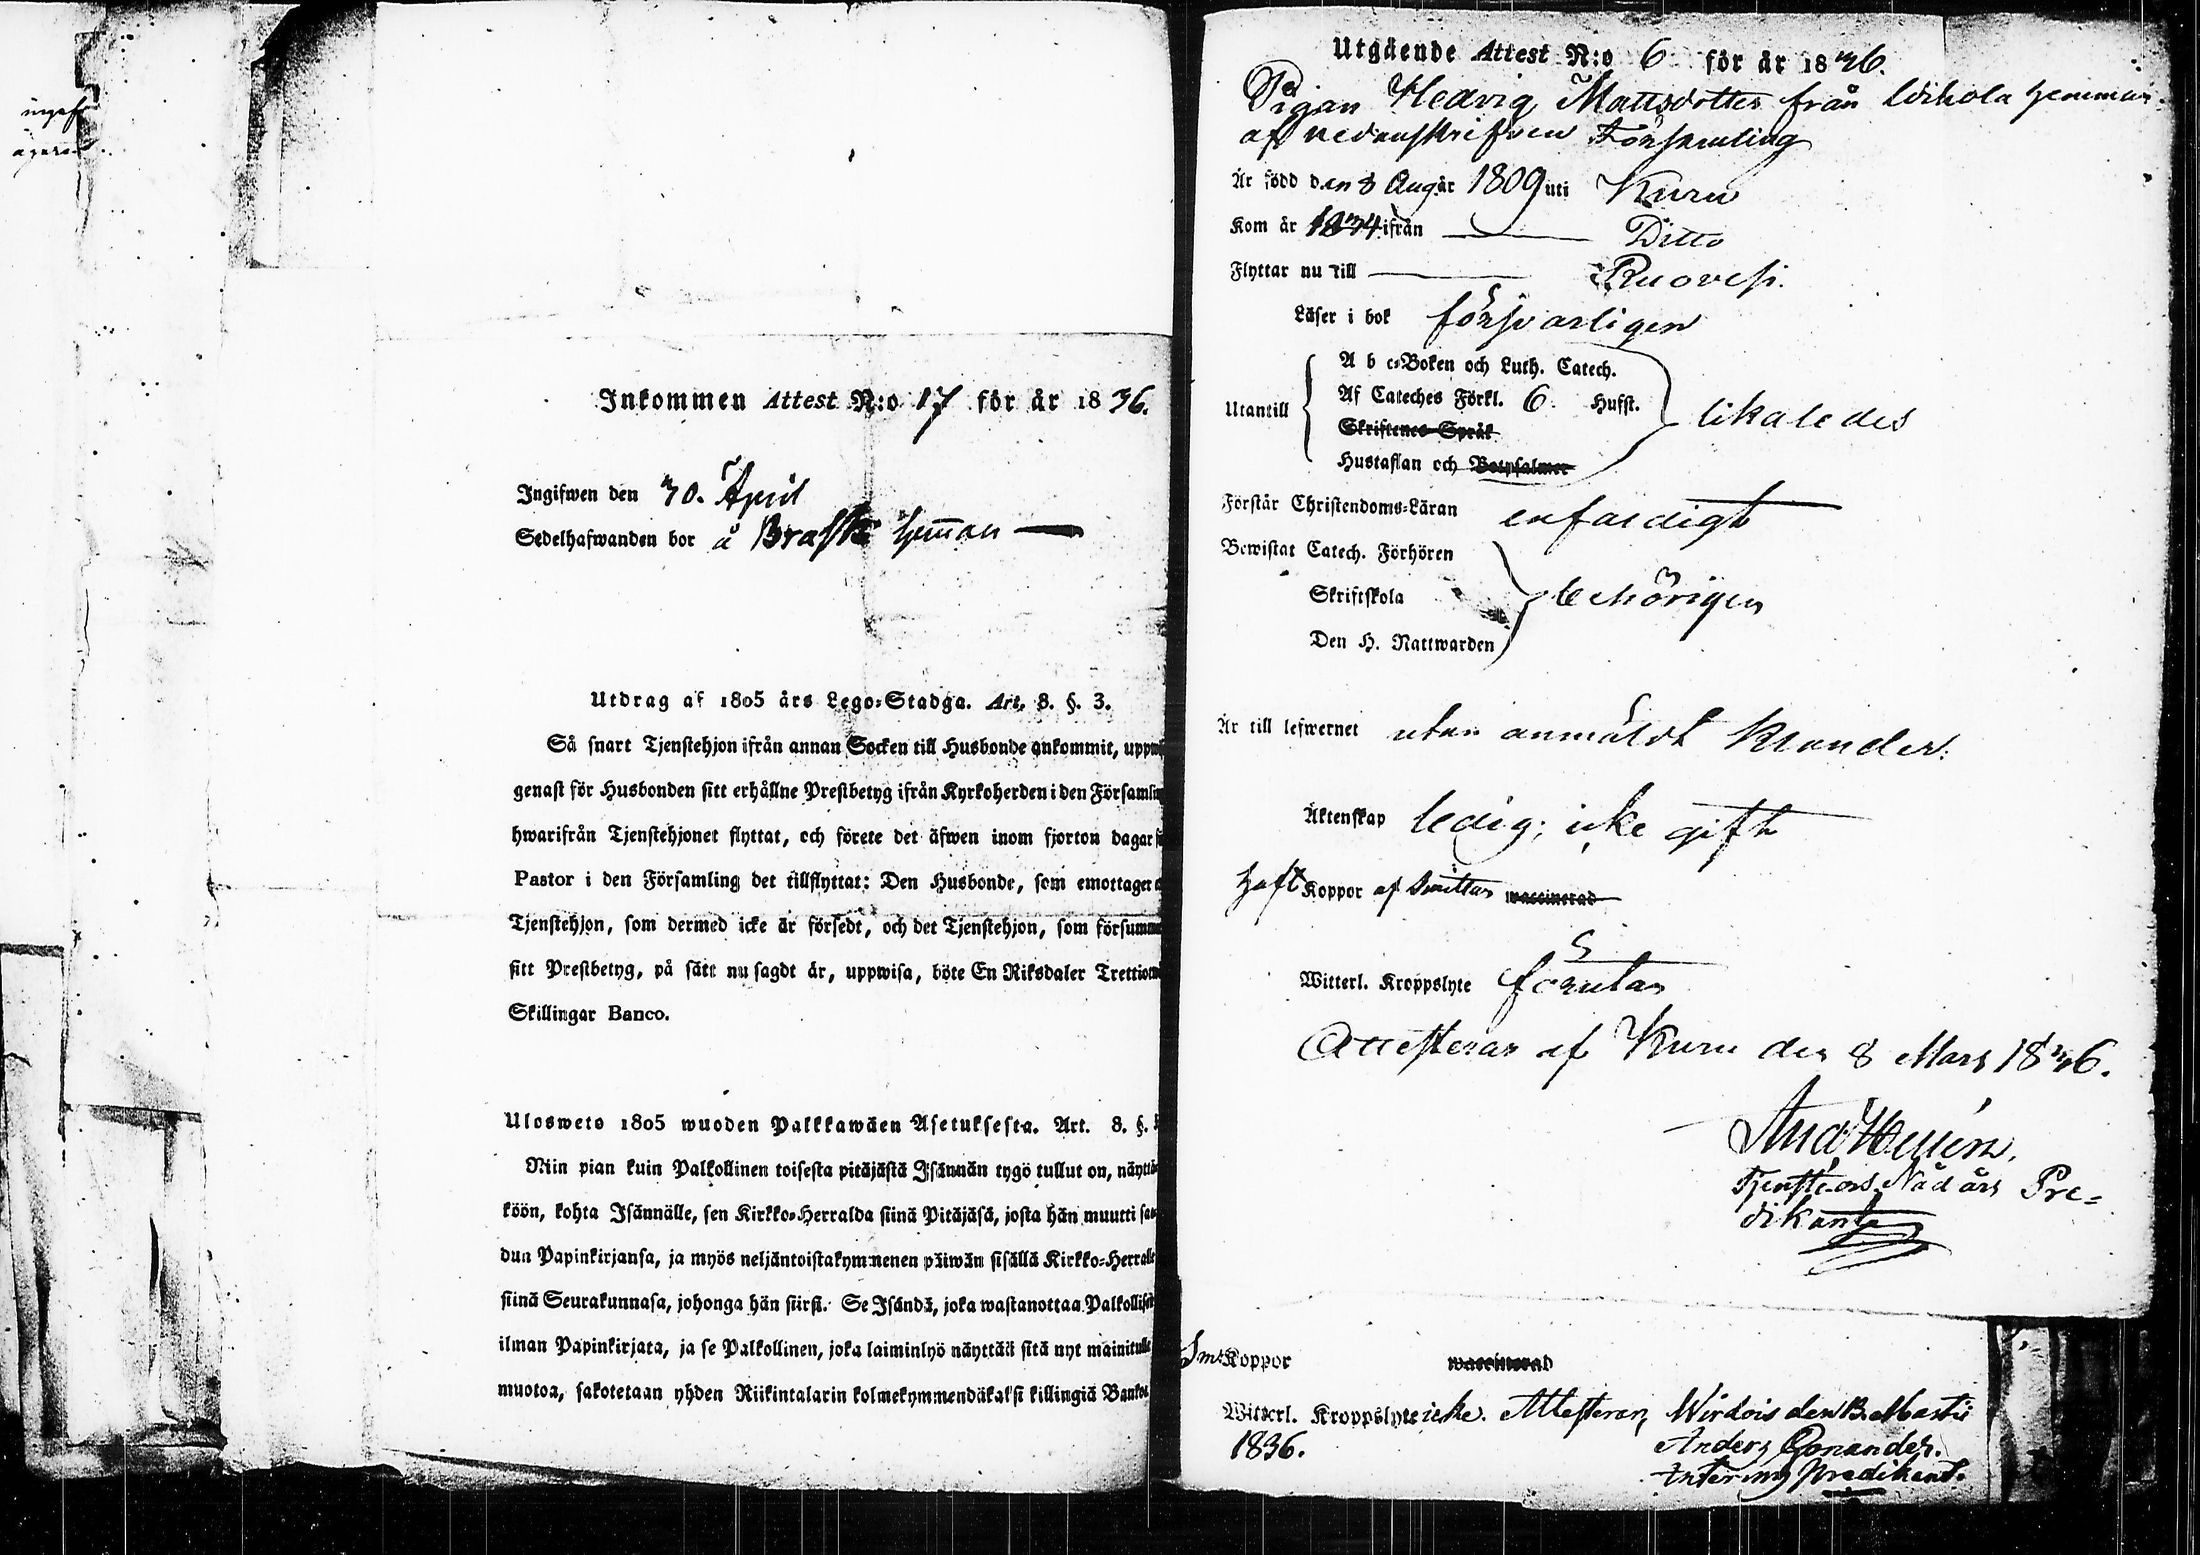 Inkommen Attest N:o 17 för år 1836.
Ingifwen den 30. April
Sedelhafwanden bor å Brask hem̄an
Utdrag af 1805 års Lego-Stadga. Art. 8. §. 3.
Så snart Tjenstehjon ifrån annan Socken till Husbonde ankommit, uppwi
genast för Husbonden sitt erhållne Prestbetyg ifrån Kyrkoherden i den Församlin
hwarifrån Tjenstehjonet flyttat, och förete det äfwen inom fjorton dagar
Pastor i den Församling det tillflyttat: Den Husbonde, som emottager
Tjenstehjon, som dermed icke är försedt, och det Tjenstehjon, som försumm
sitt Prestbetyg, på sätt nu sagdt är, uppwisa, böte En Riksdaler Trettiotw
Skillingar Banco.
Ulosweto 1805 wuoden Palkkawäen Asetuksesta. Art. 8. §.
Niin pian kuin Palkollinen toisesta pitäjästä Isännän tygö tullut on, näyttä
köön, kohta Isännälle, sen Kirkko-Herralda siinä Pitäjäsä, josta hän muutti saa
dun Papinkirjansa, ja myös neljäntoistakymmenen päiwän sisällä Kirkko-Herralle
siinä Seurakunnasa, johonga hän siirsi. Se Isändä, joka wastanottaa Palkollisen
ilman Papinkirjata, ja se Palkollinen, joka laiminlyö näyttää sitä nyt mainitulla
muotoa, sakotetaan yhden Riikintalarin kolmekymmendäkaksi killingiä Bankos
Utgående Attest N:o 6 för år 1836.
Pigan Hedvig Mattsdotter från hemman
af nedanskrifven Församling
Är född den 8 Aug år 1809 uti Kuru
Kom år 1834 ifrån Ditto
Flyttar nu till Ruovesi.
Läser i bok försvarligen
Utantill
A b c-Boken och Luth. Catech.
Af Cateches Förkl. 6. Hufst. likaledes
Skriftenes Språk
Hustaflan och Botpsalmer
Förstår Christendoms-Läran enfaldigt
Bewistat Catech. Förhören
Skriftskola behörigen
Den H. Nattwarden
Är till lefwernet utan anmäldt klander.
Äktenskap ledig; icke gift
haft Koppor af Smittan waccinerad
Witterl. Kroppslyte förutan
Attesteras af Kuru den 8 Mars 1836.
And
Tjenst:ørs Nådårs Pre-
dikant
Koppor waccinerad
Witterl. Kroppslyte icke. Attesterar, Wirdois den 13 Martii
1836. Anders
Predikant.